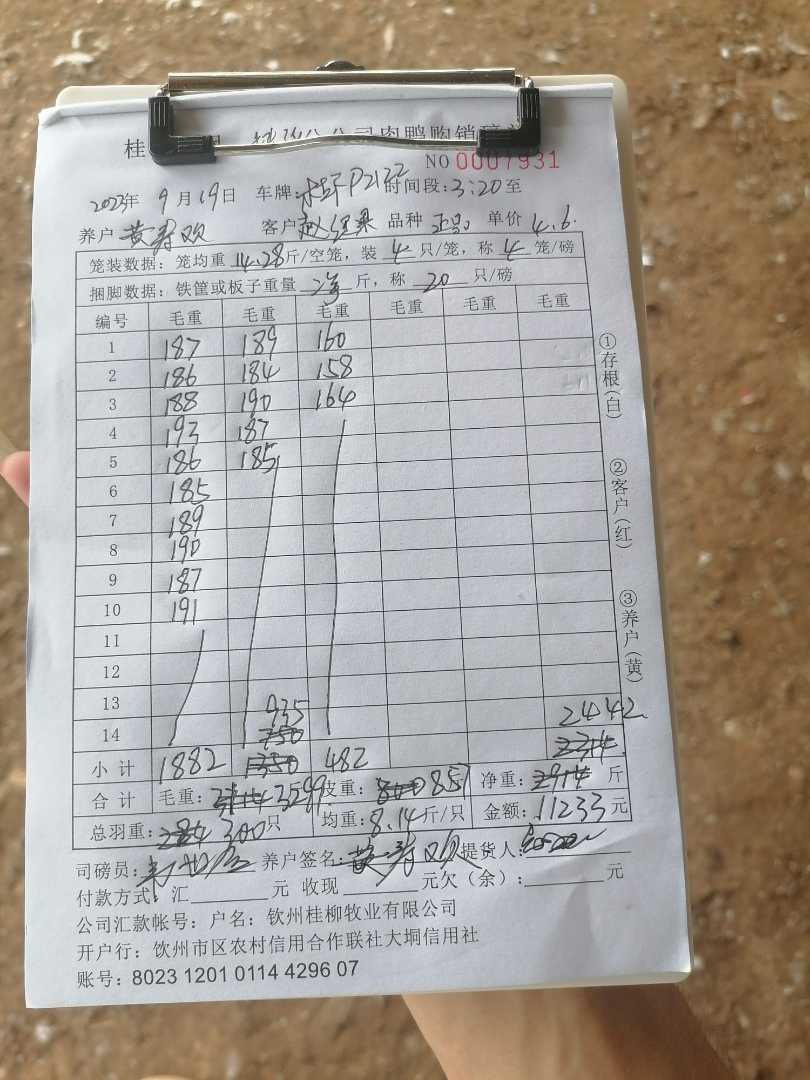 桂 公司肉鸭购销磅
NO 0007931
2023年 9月19日 车牌: P2132 时间段:3:20至
养户 黄寿欢 客户 赵 品种 正品 单价 4.6
笼装数据: 笼均重 14.28 斤/空笼, 装 4 只/笼, 称 4 笼/磅
捆脚数据: 铁筐或板子重量 净 斤, 称 20 只/磅
编号 毛重 毛重 毛重 毛重 毛重 毛重
1 187 189 160
2 186 184 158
3 188 190 164
4 193 187
5 186 185
6 185
7 189
8 190
9 187
10 191
11
12
13 935 2442
14
小计 1882 482
合计 毛重: 3299 斤 皮重: 857 净重: 斤
总羽重: 300 只 均重: 8.14 斤/只 金额: 11233 元
司磅员: 养户签名: 黄寿欢 提货人:
付款方式: 汇 元 收现 元欠(余): 元
公司汇款帐号: 户名: 钦州桂柳牧业有限公司
开户行: 钦州市区农村信用合作联社大垌信用社
账号: 8023 1201 0114 4296 07
①存根(白)
②客户(红)
③养户(黄)